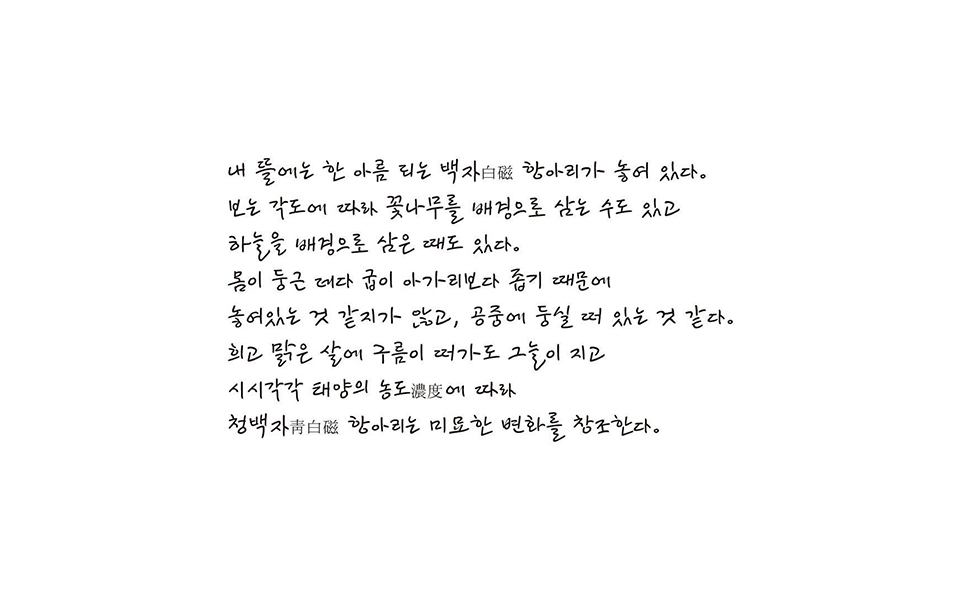 내 뜰에는 한 아름 되는 백자白磁 항아리가 놓여 있다.
보는 각도에 따라 꽃나무를 배경으로 삼는 수도 있고
하늘을 배경으로 삼은 때도 있다.
몸이 둥근 데다 굽이 아가리보다 좁기 때문에
놓여있는 것 같지가 않고, 공중에 둥실 떠 있는 것 같다.
희고 맑은 살에 구름이 떠가도 그늘이 지고
시시각각 태양의 농도濃度에 따라
청백자靑白磁 항아리는 미묘한 변화를 창조한다.